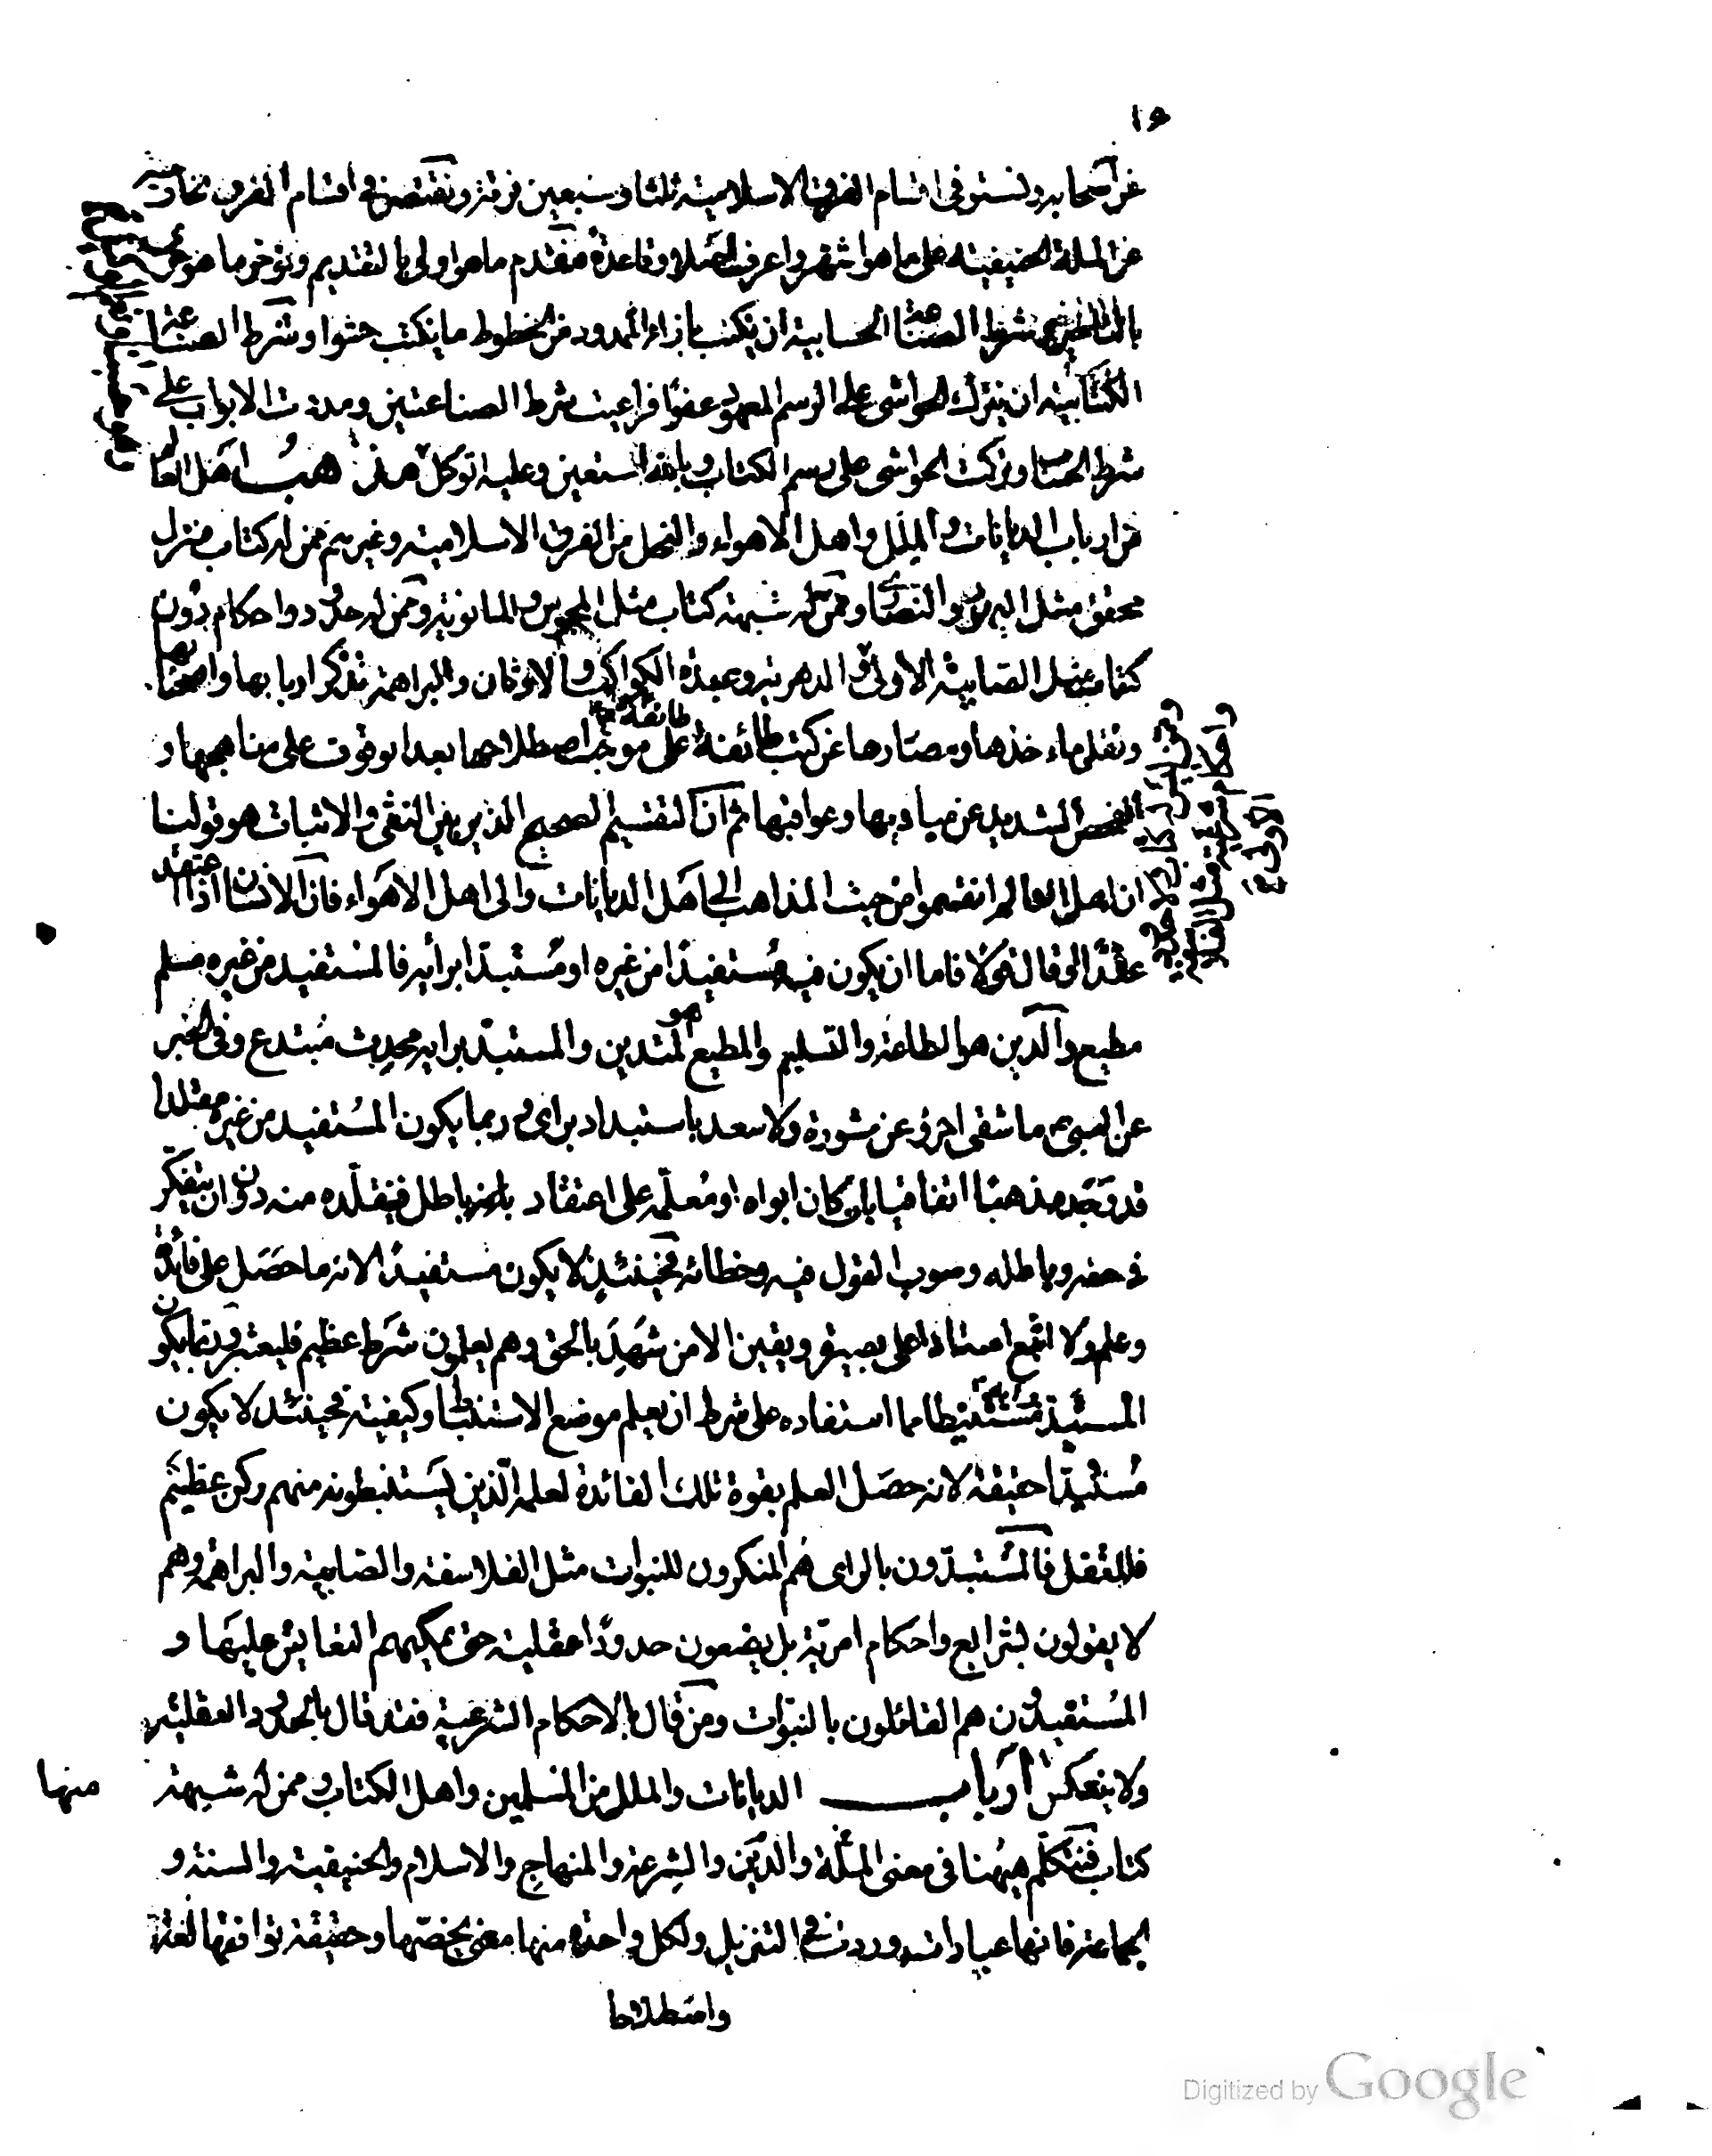 ١٥
عن اصحابه ونستوفى اقسام الفرق الاسلامية ثلثا وسبعين فرقة ونقتصر فى اقسام الفرق الخارجة
عن الملة الحنيفية على ما هو اشهر واعرف اصلا وقاعدة فنقدم ما هو اولى بالتقديم ونؤخر ما هو
بالتاخير شرط الصناعة الحسابية ان يكتب بازاء الممدود من الخطوط ما يكتب حشوا وشرط الصناعة
الكتابية ان يترك الحواشى على الرسم المعهود عفوا فراعيت شرط الصناعتين ومددت الابواب على
شرط الحساب وتركت الحواشى على رسم الكتاب وبالله استعين وعليه اتوكل مذاهب اهل العالم
من ارباب الديانات والملل واهل الاهواء والنحل من الفرق الاسلامية وغيرهم ممن له كتاب منزل
محقق مثل اليهود والنصارى وممن له شبهة كتاب مثل المجوس والمانوية وممن له حدود واحكام دون
كتاب مثل الصابية الاولى والدهرية وعبدة الكواكب والاوثان والبراهمة نذكر اربابها واصحابها
وننقل ماءخذها ومصادرها عن كتب طائفة طائفة على موجب اصطلاحها بعد الوقوف على مناهجها و
الفحص الشديد عن مباديها وعواقبها ثم ان التقسيم الصحيح الدائر بين النفى والاثبات هو قولنا
ان اهل العالم انقسموا من حيث المذاهب الى اهل الديانات والى اهل الاهواء فان الانسان اذا اعتقد
عقدا او قال قولا فاما ان يكون فيه مستفيدا من غيره او مستبدا برأيه فالمستفيد من غيره مسلم
مطيع والدين هو الطاعة والتسليم والمطيع هو المتدين والمستبد برايه محدث مبتدع وفى الخبر
عن النبى م ما شقى امرؤ عن مشورة ولا سعد باستبداد براى وربما يكون المستفيد من غيره مقلدا
قد وجد مذهبا اتفاقيا بان كان ابواه او معلمه على اعتقاد باطل فيتقلده منه دون ان يتفكر
فى حقه وباطله وصواب القول فيه وخطائه فحينئذ لا يكون مستفيدا لانه ما حصل على فائدة
وعلم ولا اتبع استاذا على بصيرة ويقين الا من شهد بالحق وهم يعلمون شرط عظيم فليعتبر وربما يكون
المستبد مستنبطا مما استفاده على شرط ان يعلم موضع الاستنباط وكيفيته فحينئذ لا يكون
مستبدا حقيقة لانه حصل العلم بقوة تلك الفائدة لعلمه الذين يستنبطونه منهم ركن عظيم
فلا تغفل فالمستبدون بالراى هم المنكرون للنبوات مثل الفلاسفة والصابية والبراهمة وهم
لا يقولون بشرايع واحكام امرية بل يضعون حدودا عقلية حتى يمكنهم التعايش عليها و
المستفيدون هم القائلون بالنبوات ومن قال بالاحكام الشرعية فقد قال بالحدود العقلية
ولا ينعكس ارباب الديانات والملل من المسلمين واهل الكتاب وممن له شبهة
منها
كتاب فنتكلم هيهنا فى معنى الملة والدين والشرعة والمنهاج والاسلام والحنيفية والسنة و
الجماعة فانها عبارات وردت فى التنزيل ولكل واحدة منها معنى يخصها وحقيقة توافقها لغة
واصطلاحا
Digitized by Google